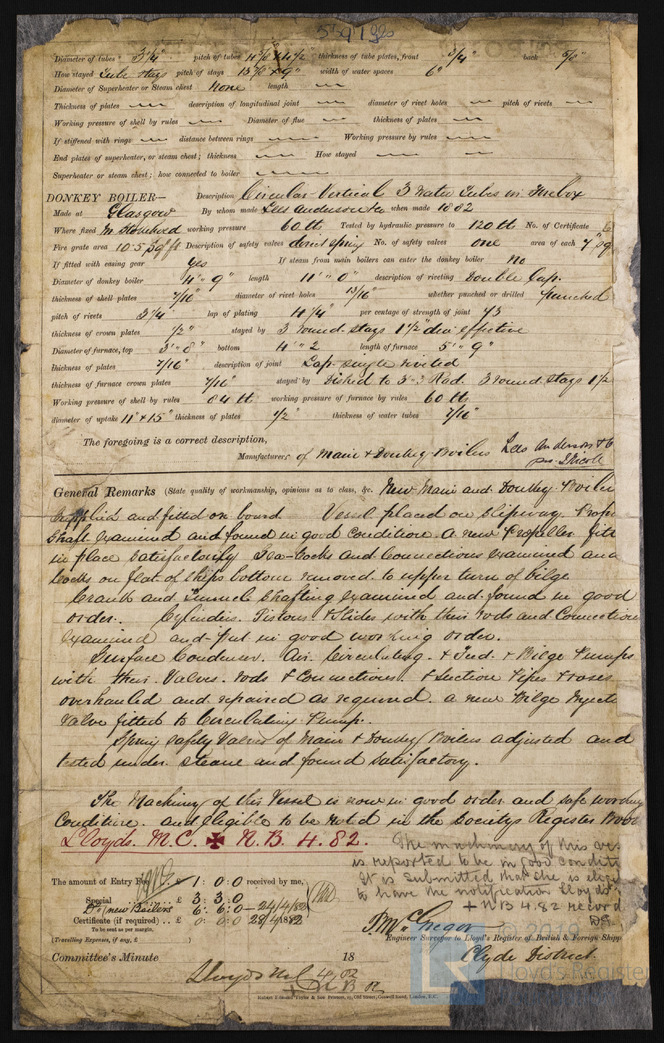 Diameter of tubes 3 1/4" pitch of tubes 4 3/8" x 4 1/2 thickness of tube plates, front 3/4" back 5/8"
How stayed Tube stays pitch of stays 13 1/8" x 9" width of water spaces 6"
Diameter of Superheater or Steam chest None length —
Thickness of plates — description of longitudinal joint — diameter of rivet holes — pitch of rivets —
Working pressure of shell by rules — Diameter of flue — thickness of plates —
If stiffened with rings — distance between rings — Working pressure by rules —
End plates of superheater, or steam chest; thickness — How stayed —
Superheater or steam chest; how connected to boiler —
DONKEY BOILER— Description Circular Vertical 3 Water Tubes in Firebox
Made at Glasgow By whom made Lees Anderson & Co when made 1882
Where fixed In Stokehold working pressure 60 lb Tested by hydraulic pressure to 120 lb No. of Certificate
Fire grate area 10.5 sq ft Description of safety valves direct spring No. of safety valves one area of each 7" sq
If fitted with easing gear yes If steam from main boilers can enter the donkey boiler no
Diameter of donkey boiler 4'' 9" length 11'' 0" description of riveting Double Lap.
thickness of shell plates 7/16" diameter of rivet holes 13/16" whether punched or drilled punched
pitch of rivets 3 1/4 lap of plating 4 1/4" per centage of strength of joint 73
thickness of crown plates 1/2" stayed by 3 round stays 1 1/2" dia effective
Diameter of furnace, top 3'' 8" bottom 4'' 2 length of furnace 5'' 9"
thickness of plates 7/16" description of joint Lap single riveted
thickness of furnace crown plates 7/16" stayed by Dished to 3'-3 Rad. 3 round stays 1 1/2
Working pressure of shell by rules 64 lb working pressure of furnace by rules 60 lb
diameter of uptake 11" x 15" thickness of plates 1/2" thickness of water tubes 7/16"
The foregoing is a correct description,
Manufacturer of Main & Donkey Boilers Lees Anderson & C
General Remarks (State quality of workmanship, opinions as to class, &c. New Main and Donkey Boiler
supplied and fitted on board Vessel placed on slipway. Prope
shaft examined and found in good condition. a new Propeller fitt
in place satisfactorily Sea-Cocks and Connections examined and
Cocks on flat of ships bottom removed to upper turn of bilge
Crank and Tunnel Shafting examined and found in good
order. Cylinders. Pistons. & Slides with their rods and Connection
examined and put in good working order.
Surface Condenser. Air. Circulating. & Feed. & Bilge Pumps
with their Valves. rods & Connections. & Suction Pipes & roses
overhauled and repaired as required. a new Bilge Injecti
Valve fitted to Circulating Pump.
Spring Safety Valves of Main & Donkey Boilers adjusted and
tested under steam and found satisfactory.
The Machinery of this Vessel is now in good order and safe working
Condition. and Eligible to be noted in the Societys Register Book
Lloyds. M.C. ✠ N.B. 4.82.
The machinery of this ves
is reported to be in good condit
It is submitted that she is elig
to have the notification Lloyds
+ N B 4.82 record
The amount of Entry Fee .. £ 1 : 0 : 0 received by me,
Special £ 3 : 3 : 0
Do (new Boilers) 6 : 6 : 0 — 24/4/82
Certificate (if required) .. £ 0 : 0 : 0 28/4/1882
To be sent as per margin.
(Travelling Expenses, if any, £ )
J. McGregor
Engineer Surveyor to Lloyd's Register of British & Foreign Shipp
Clyde District
Committee's Minute 18
Lloyds M.C. 4.82
+ N B